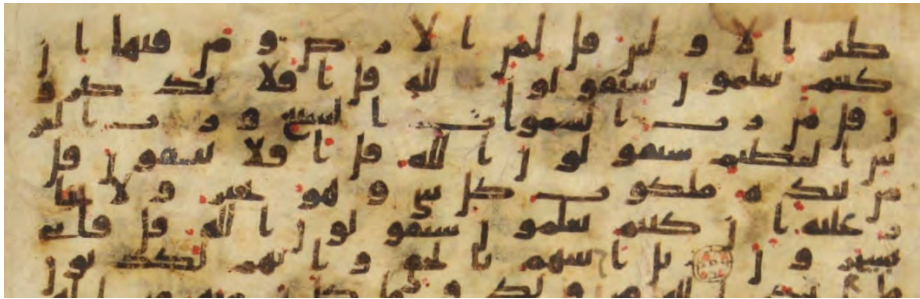 طير الاولين قل لمن الارض و من فيها ان
كنتم تعلمون سيقولون لله قل افلا تذكرو
ن قل من رب السموات السبع و رب العر
ش العظيم سيقولون الله قل افلا تتقون قل
من بيده ملكوت كل شى و هو يجير و لا يجا
ر عليه ان كنتم تعلمون سيقولون الله قل فانى
تسحرون بل اتينهم بالحق و انهم لكذبون